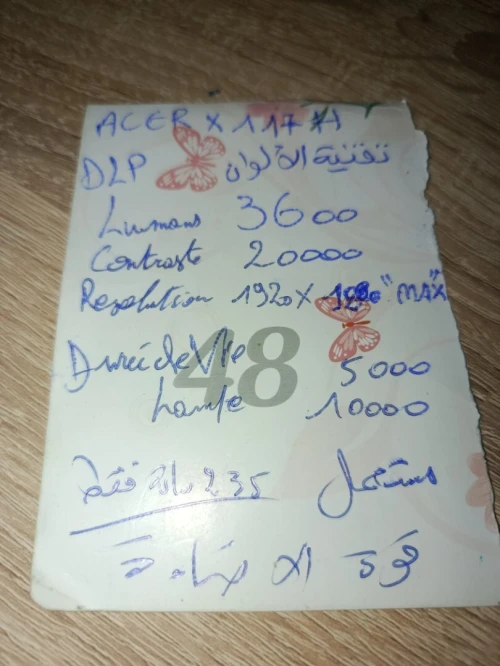 ACER X 117 H
DLP تقنية الألوان
Lumens 3600
Contraste 20000
Resolution 1920 X 1080 "MAX"
Durée de Vie 5000
Lampe 10000
48
مستعمل 235 ساعة فقط
قوة الإضاءة